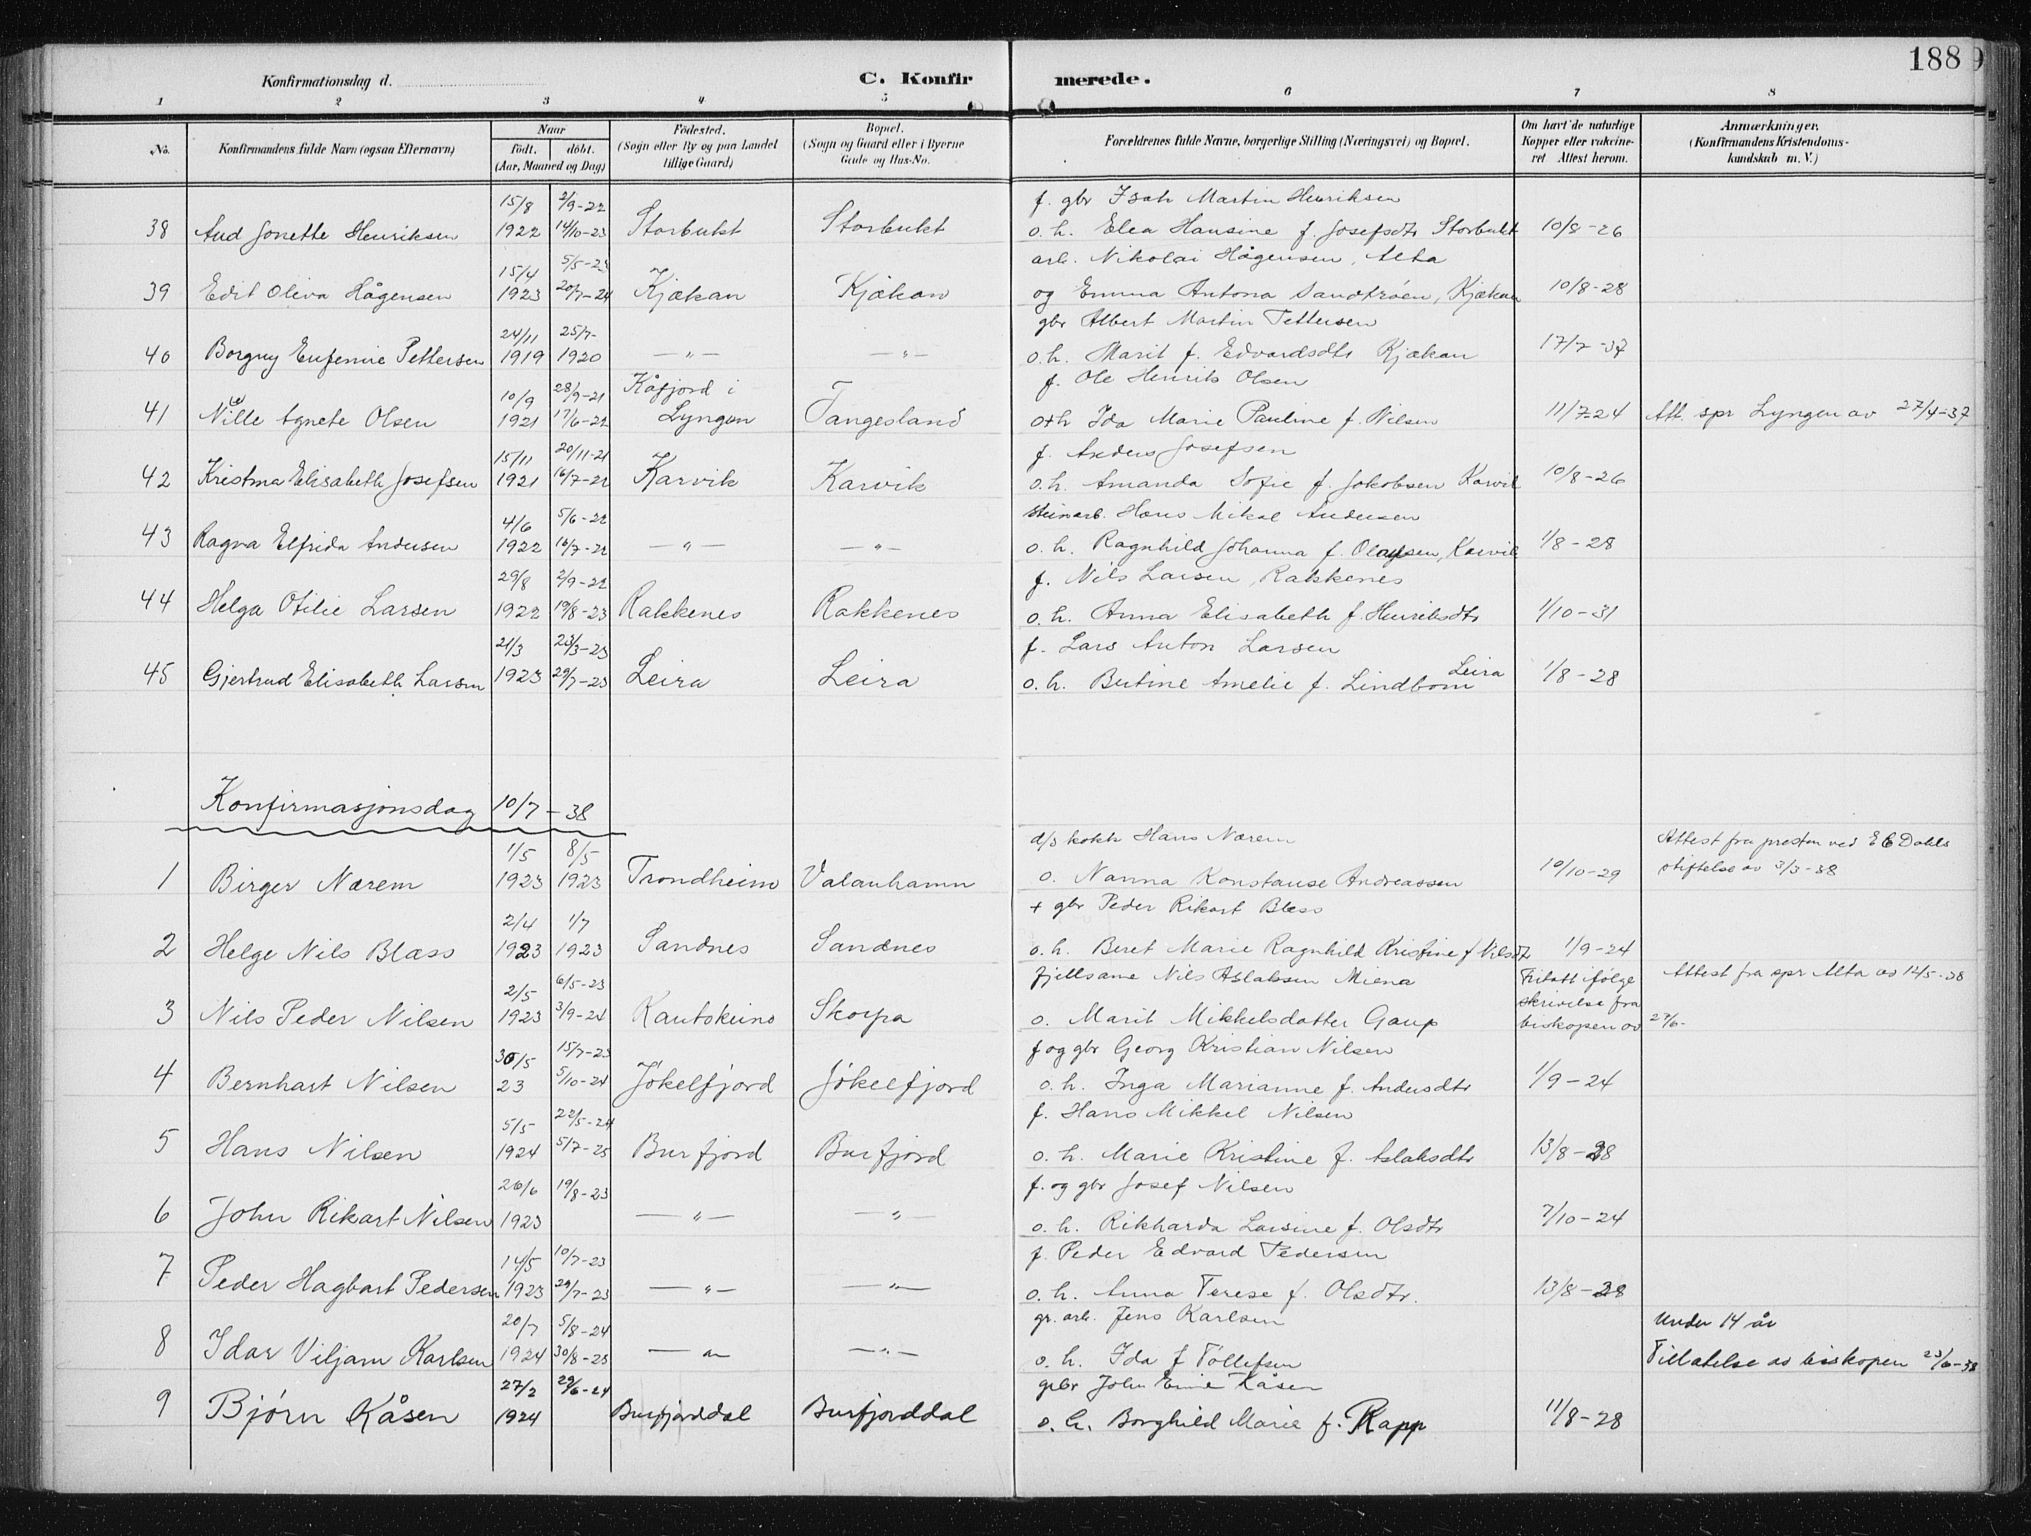 188
Konfirmationsdag d.
C. Konfirmerede.
1 2 3 4 5 6 7 8
No.
Konfirmandens fulde Navn (ogsaa Efternavn)
Naar
født. døbt.
(Aar, Maaned og Dag)
Fødested.
(Sogn eller By og paa Landet
tillige Gaard)
Bopæl.
(Sogn og Gaard eller i Byerne
Gade og Hus-No.
Forældrenes fulde Navne, borgerlige Stilling (Næringsvei) og Bopæl.
Om havt de naturlige
Kopper eller vakcine-
ret Attest herom.
Anmærkninger.
(Konfirmandens Kristendoms-
kundskab m. V.)
15/8 2/9-22 f. gbr Isak Martin Henriksen
38 Aud Jonette Henriksen 1922 14/10-23 Storbukt Storbukt o. h. Elea Hansine f. Josefsdtr Storbukt 10/8-26
15/4 5/5-23 arb. Nikolai Hågensen, Alta
39 Edit Oliva Hågensen 1923 20/7-24 Kjækan Kjækan og Emma Antona Sandtrøen, Kjækan 10/8-28
24/11 25/7- gbr Albert Martin Pettersen
40 Borgny Eufemie Pettersen 1919 1920 —"— —"— o. h. Marit f. Edvardsdtr Kjækan 17/7-37
10/9 28/9-21 Kåfjord i f. Ole Henrik Olsen
41 Nille Agnete Olsen 1921 17/6-22 Lyngen Tangesland o+h Ida Marie Pauline f. Nilsen 11/7-24 Att. spr Lyngen av 27/4-37
15/11 20/11-21 f. Anders Josefsen
42 Kristina Elisabeth Josefsen 1921 16/7-22 Karvik Karvik o. h. Amanda Sofie f. Jakobsen Karvik 10/8-26
4/6 5/6-22 steinarb. Hans Mikal Andersen
43 Ragna Elfrida Andersen 1922 16/7-22 —"— —"— o. h. Ragnhild Johanna f. Olausen, Karvik 1/8-28
29/8 2/9-22 f. Nils Larsen, Rakkenes
44 Helga Otilie Larsen 1922 19/8-23 Rakkenes Rakkenes o. h. Anna Elisabeth f. Henriksdtr 1/10-31
21/3 23/3-23 f. Lars Anton Larsen
45 Gjertrud Elisabeth Larsen 1923 29/7-23 Leira Leira o. h. Bertine Amelie f. Lindbom Leira 1/8-28
Konfirmasjonsdag 10/7-38
1/5 8/5 d/s kokk Hans Nærem Attest fra presten ved E C Dahls
1 Birger Nærem 1923 1923 Trondheim Valanhamn o. Nanna Konstanse Andreassen 10/10-29 stiftelse av 3/3-38
2/4 1/7 + gbr Peder Rikart Blæss
2 Helge Nils Blæss 1923 1923 Sandnes Sandnes o. h. Beret Marie Ragnhild Kristine f Nilsdtr 1/9-24
2/5 6/5-23 fjellsame Nils Aslaksen Miena Fritatt ifølge Attest fra spr Alta av 14/5-38
3 Nils Peder Nilsen 1923 3/9-24 Kautokeino Skorpa o. Marit Mikkelsdatter Gaup skrivelse fra
biskopen av 27/6-
30/5 15/7-23 f og gbr Georg Kristian Nilsen
4 Bernhart Nilsen 23 5/10-24 Jøkelfjord Jøkelfjord o. h. Inga Marianne f. Andersdtr 1/9-24
5/5 22/5-24 f. Hans Mikkel Nilsen
5 Hans Nilsen 1924 5/7-25 Burfjord Burfjord o. h. Marie Kristine f. Aslaksdtr 13/8-28
26/6 19/8-23 f. og gbr Josef Nilsen
6 John Rikart Nilsen 1923 —"— —"— o. h. Rikharda Larsine f. Olsdtr 7/10-24
14/5 10/7-23 f. Peder Edvard Pedersen
7 Peder Hagbart Pedersen 1923 29/7-23 —"— —"— o. h. Anna Terese f. Olsdtr. 13/8-28
20/7 5/8-24 gr. arb. Jens Karlsen Under 14 år
8 Idar Viljam Karlsen 1924 30/8-25 —"— —"— o. h. Ida f Tollefsen Tillatelse av biskopen 23/6-38
27/2 29/6-24 gbr John Emil Kåsen
9 Bjørn Kåsen 1924 Burfjorddal Burfjorddal o. h. Borghild Marie f. Rapp 11/8-28